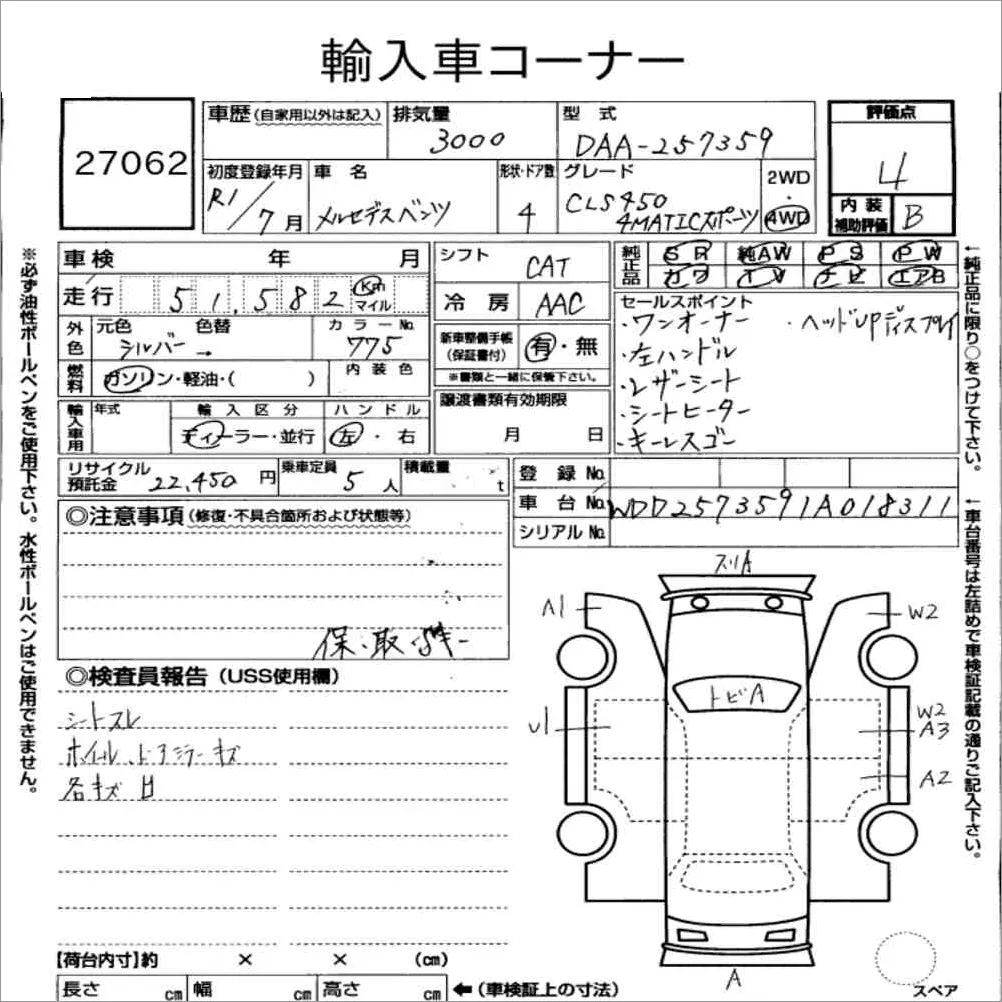 輸入車コーナー
27062
車歴(自家用以外は記入)
排気量
3000
型 式
DAA-257359
評価点
4
初度登録年月
R1/7月
車 名
メルセデスベンツ
形状・ドア数
4
グレード
CLS450
4MATICスポーツ
2WD
・
4WD
内 装
補助評価
B
車検 年 月
走行 51,582 Km
マイル
シフト
CAT
冷 房
AAC
純正品
SR 純AW PS PW
カワ TV ナビ エアB
外色
元色 色替
シルバー →
カラーNo.
775
新車整備手帳
(保証書付)
有・無
※書類と一緒に保管下さい。
燃料
ガソリン・軽油・( )
内 装 色
セールスポイント
・ワンオーナー ・ヘッドUPディスプレイ
・左ハンドル
・レザーシート
・シートヒーター
・キーレスゴー
譲渡書類有効期限
月 日
輸入車用
年式
輸 入 区 分
ディーラー・並行
ハ ン ド ル
左・右
リサイクル
預託金
22,450円
乗車定員
5人
積載量
t
登 録 No.
車 台 No.
WDD2573591A018311
シリアル No.
◎注意事項(修復・不具合箇所および状態等)
保・取・
◎検査員報告(USS使用欄)
シートスレ
ホイール、ドアミラーキズ
各キズ凹
スリA
A1
W2
トビA
U1
W2
A3
A2
A
スペア
【荷台内寸】約 × × (cm)
長さ cm 幅 cm 高さ cm ←(車検証上の寸法)
※必ず油性ボールペンをご使用下さい。水性ボールペンはご使用できません。
←純正品に限り○をつけて下さい。
←車台番号は左詰めで車検証記載の通りご記入下さい。